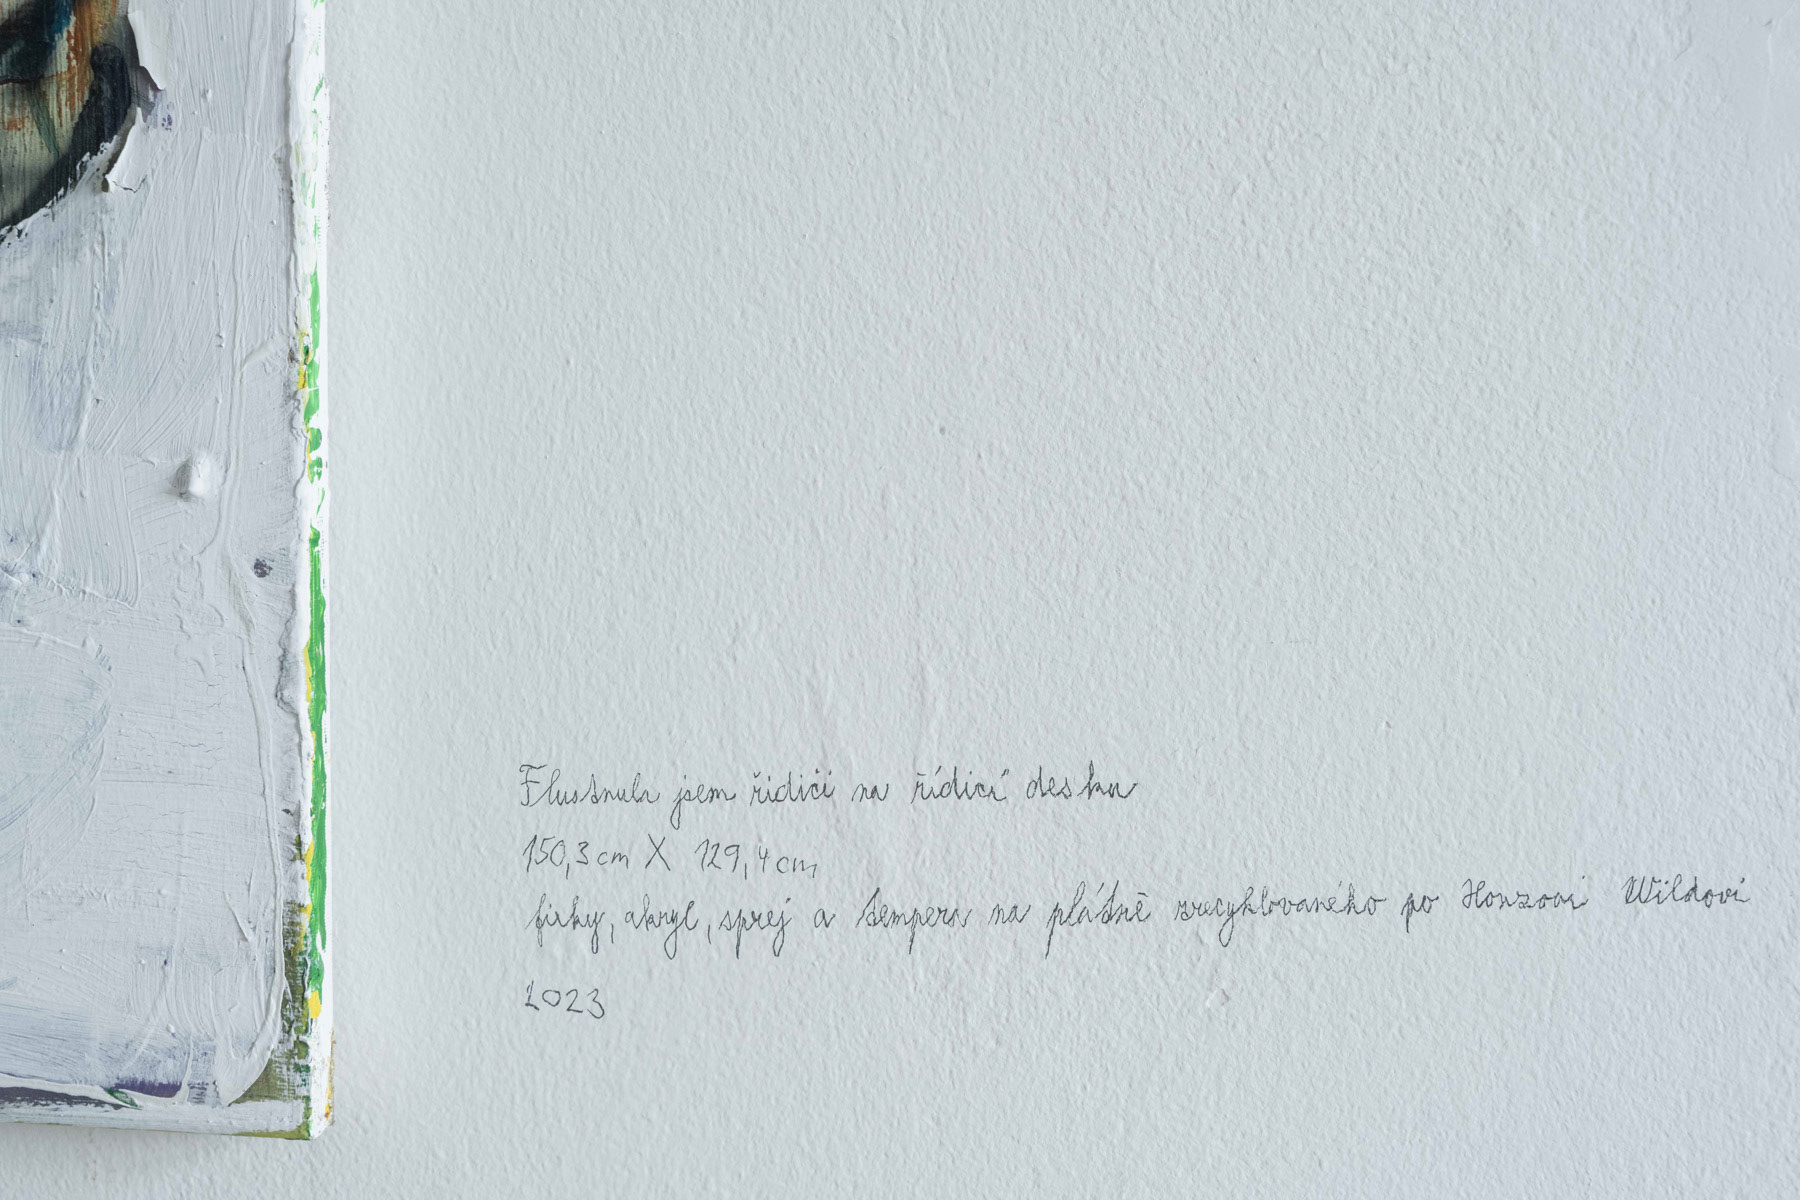 Flusnula jsem řidiči na řídicí desku
150,3 cm X 129,4 cm
fixky, akryl, sprej a tempera na plátně zrecyklovaného po Honzovi Wildovi
2023